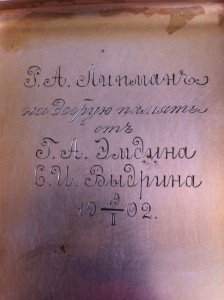 Г. А. Липманъ
на добрую память
отъ
Г. А. Эмдина
С. И. Выдрина
19 19/II 02.